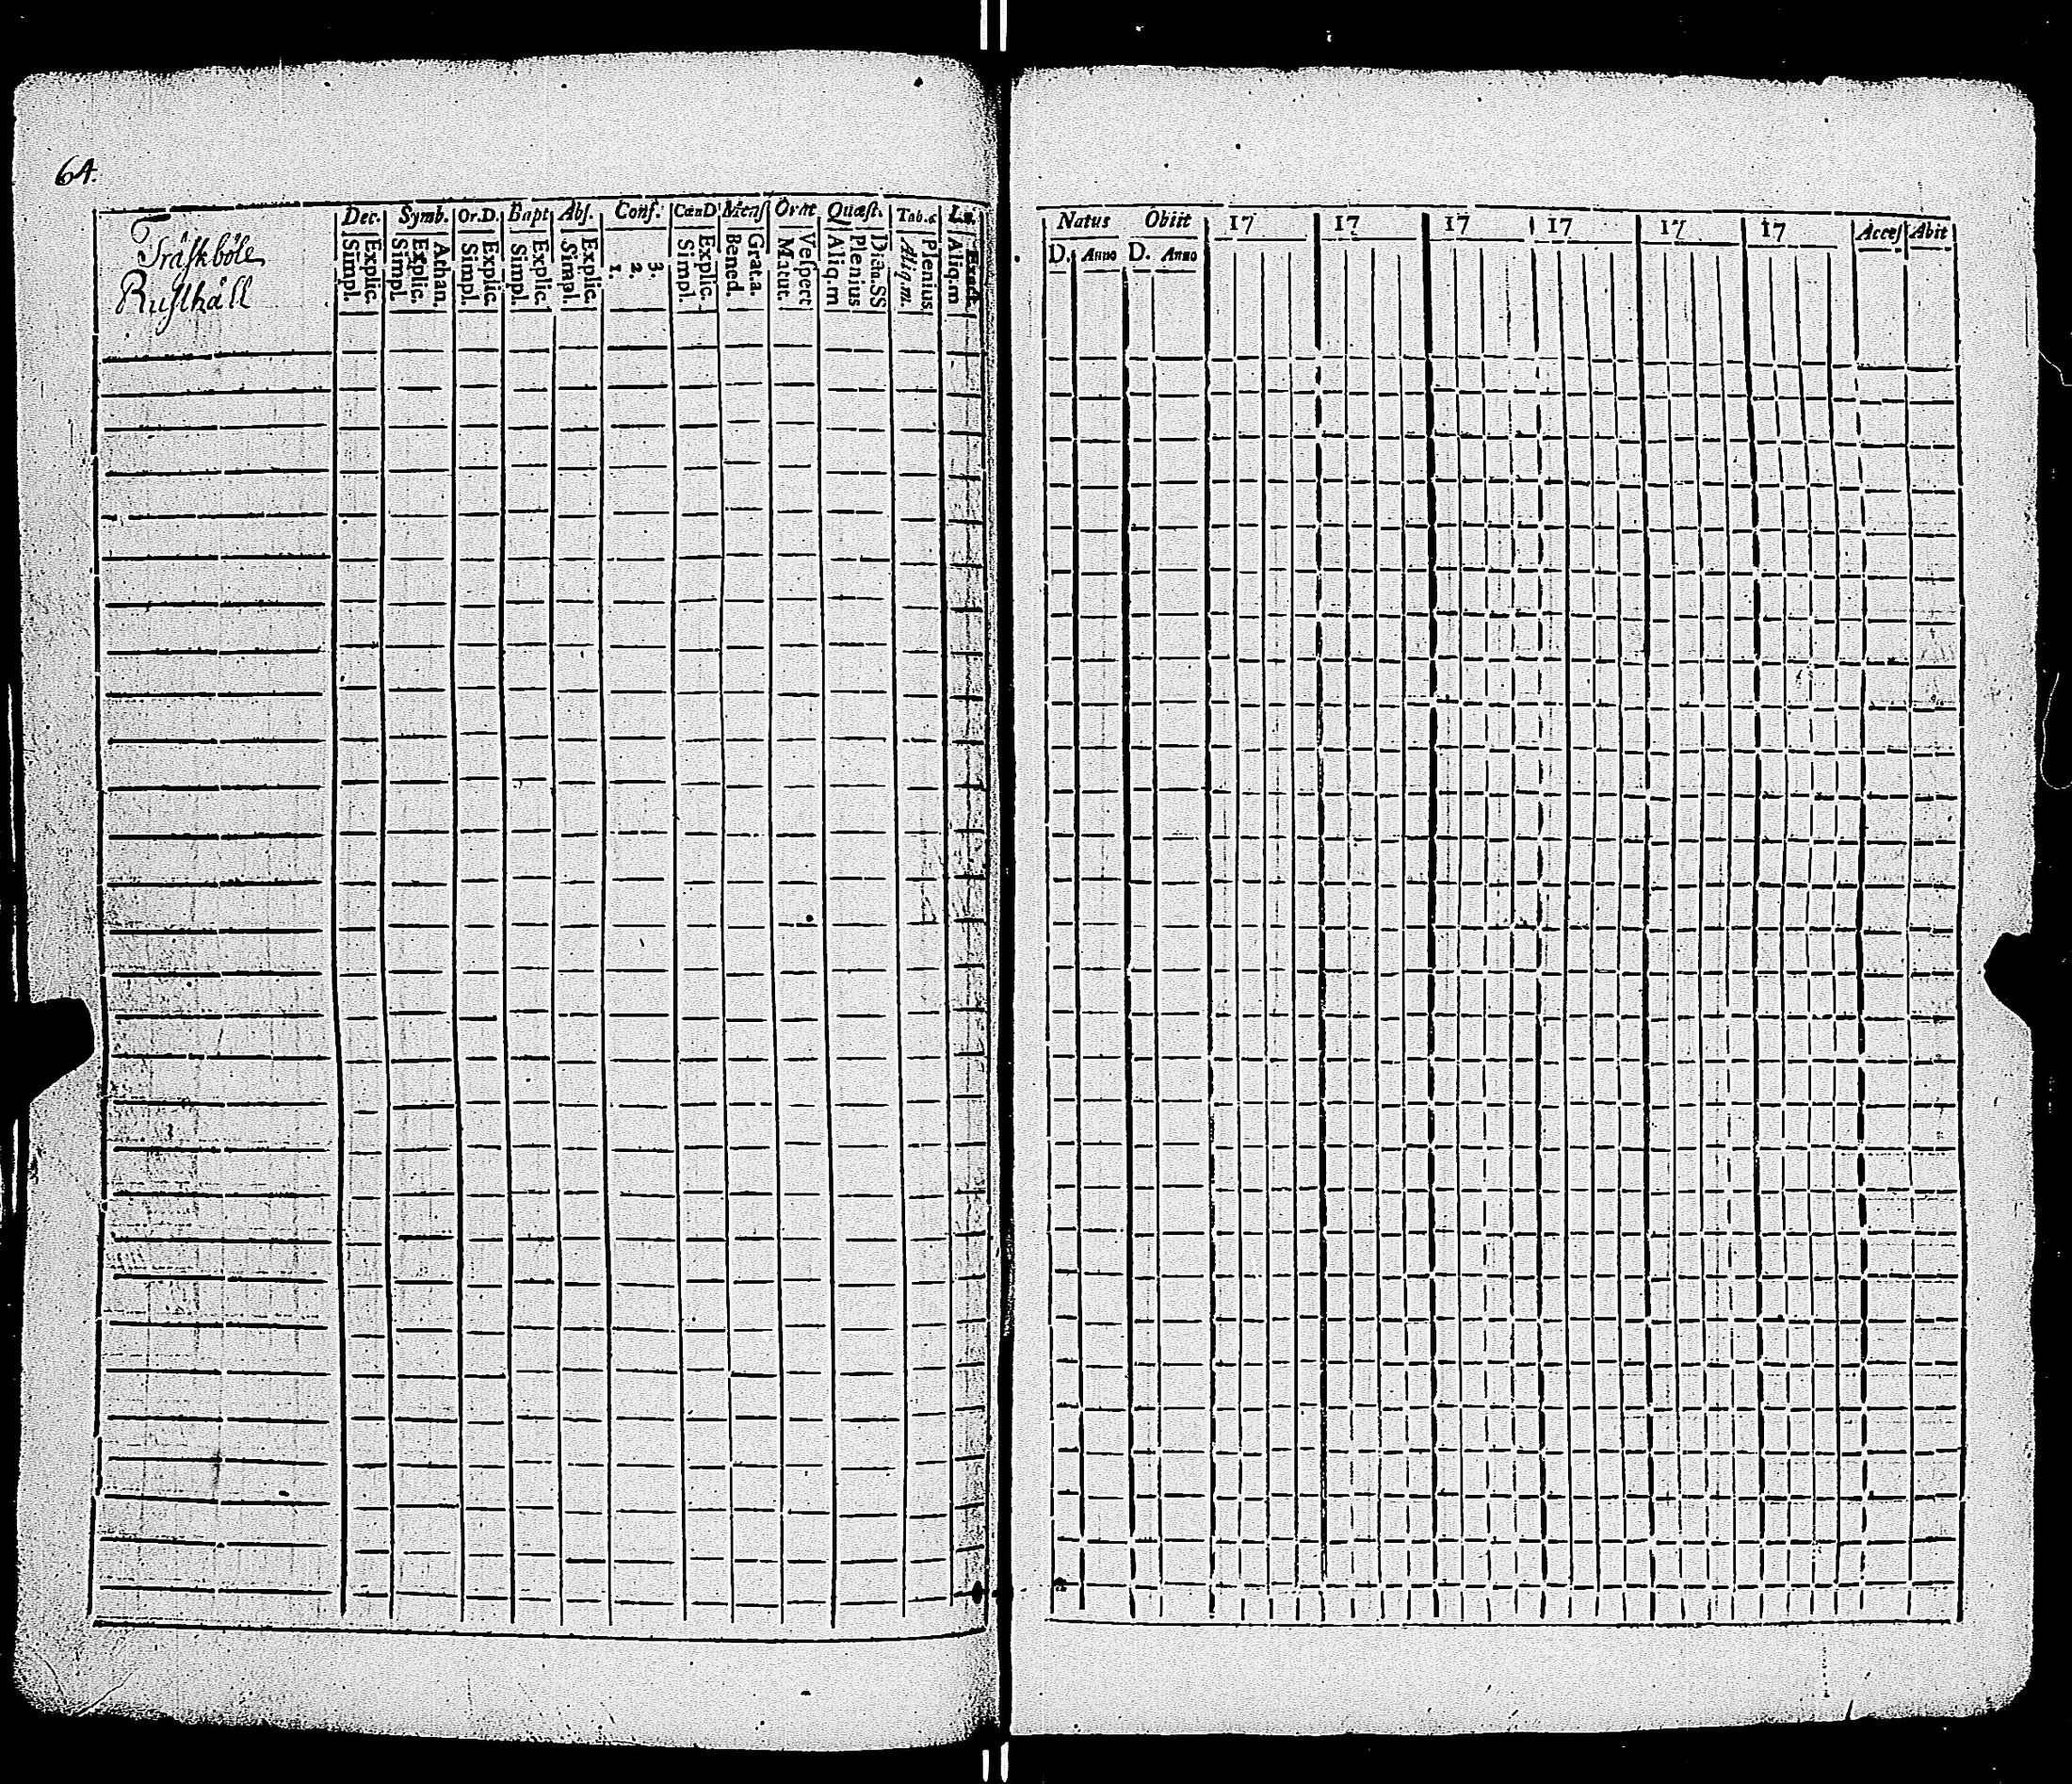 64.
Träskböle
Rusthåll
Dec. Symb. Or.D. Bapt Abs. Conf. CœnD Mens Orat Quæst. Tab.œ
Simpl. Explic. Simpl. Explic. Athan. Simpl. Explic. Simpl. Explic. Simpl. Explic. 1. 2. 3. Simpl. Explic. Bened. Grat.a. Matut. Vespert Aliq.m Plenius Dicta.SS Aliq.m. Plenius Aliq.m Exact.
Natus Obiit 17 17 17 17 17 17 Acces Abit
D. Anno D. Anno